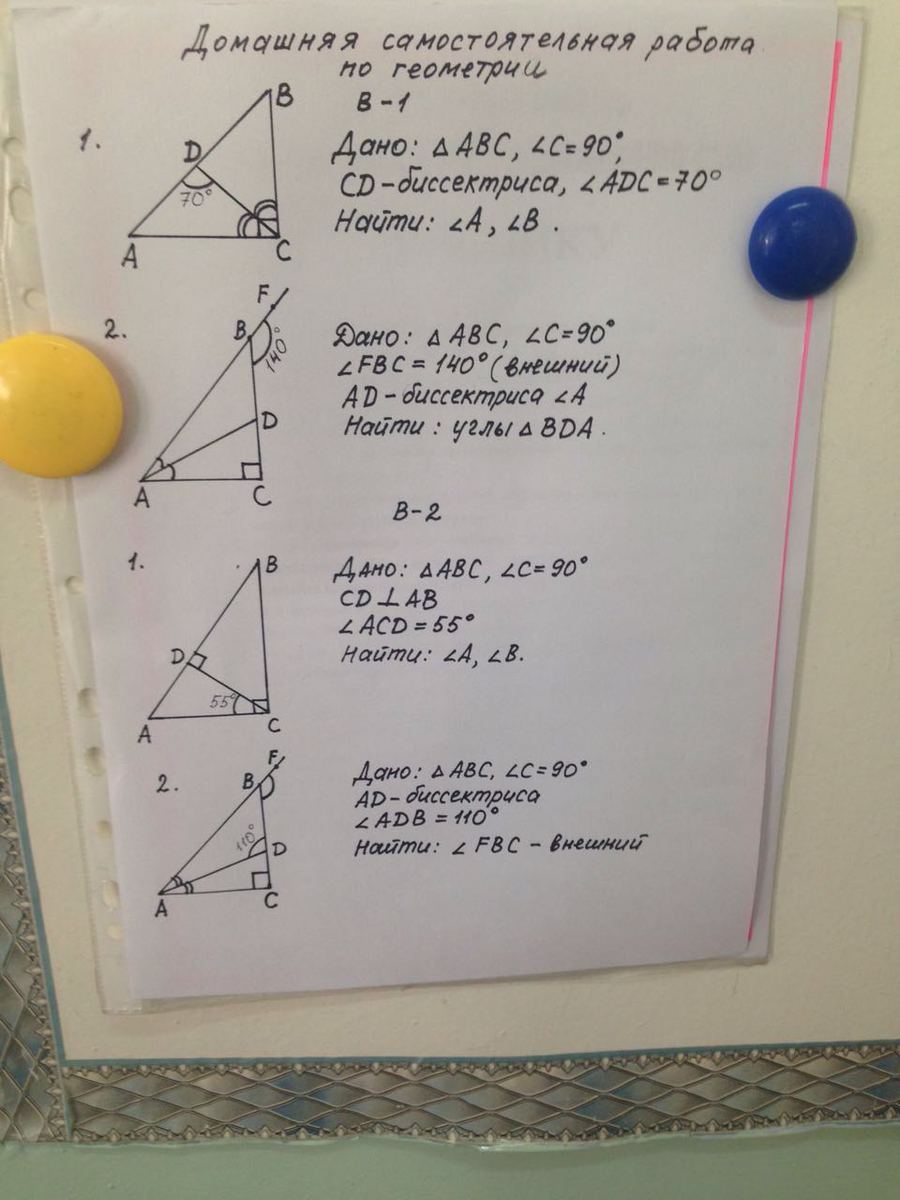 Домашняя самостоятельная работа
по геометрии
В-1
1.
B
D
70°
A
C
Дано: △ABC, ∠C=90°,
CD-биссектриса, ∠ADC=70°
Найти: ∠A, ∠B.
2.
F
B
140°
D
A
C
Дано: △ABC, ∠C=90°
∠FBC=140° (внешний)
AD-биссектриса ∠A
Найти: углы △BDA.
В-2
1.
B
D
55°
A
C
Дано: △ABC, ∠C=90°
CD⊥AB
∠ACD=55°
Найти: ∠A, ∠B.
2.
F
B
110°
D
A
C
Дано: △ABC, ∠C=90°
AD-биссектриса
∠ADB=110°
Найти: ∠FBC - внешний